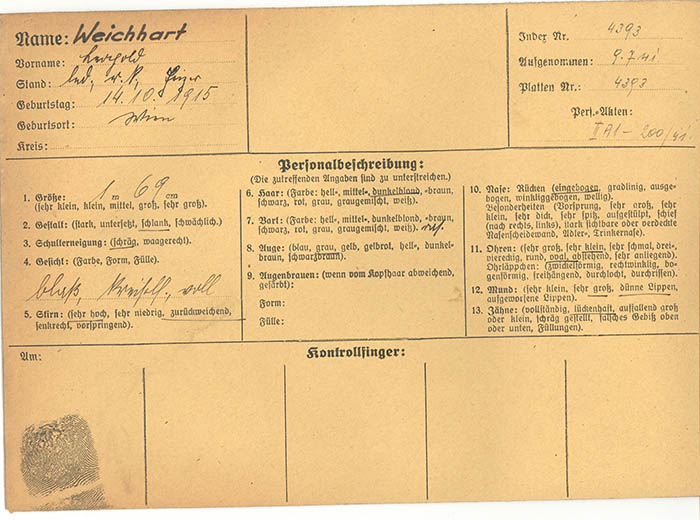 Name: Weichhart
Vorname: Leopold
Stand: led., r.k.,
Geburtstag: 14.10.1915
Geburtsort: Wien
Kreis:
Index Nr. 4393
Aufgenommen: 9.7.41
Platten Nr.: 4393
Pers.-Akten:
II A1 - 200/41
Personalbeschreibung:
(Die zutreffenden Angaben sind zu unterstreichen.)
1. Größe: 1 m 69 cm
(sehr klein, klein, mittel, groß, sehr groß).
2. Gestalt: (stark, untersetzt, schlank, schwächlich).
3. Schulterneigung: (schräg, waagerecht).
4. Gesicht: (Farbe, Form, Fülle).
blaß, voll
5. Stirn: (sehr hoch, sehr niedrig, zurückweichend,
senkrecht, vorspringend).
6. Haar: (Farbe: hell-, mittel-, dunkelblond, -braun,
schwarz, rot, grau, graugemischt, weiß).
7. Bart: (Farbe: hell-, mittel-, dunkelblond, -braun,
schwarz, rot, grau, graugemischt, weiß).
8. Auge: (blau, grau, gelb, gelbrot, hell-, dunkel-
braun, schwarzbraun).
9. Augenbrauen: (wenn vom Kopfhaar abweichend,
gefärbt):
Form:
Fülle:
10. Nase: Rücken (eingebogen, gradlinig, ausge-
bogen, winkliggebogen, wellig).
Besonderheiten (Vorsprung, sehr groß, sehr
klein, sehr dick, sehr spitz, aufgestülpt, schief
(nach rechts, links), stark sichtbare oder verdeckte
Nasenscheidewand, Adler-, Trinkernase).
11. Ohren: (sehr groß, sehr klein, sehr schmal, drei-,
viereckig, rund, oval, abstehend, sehr anliegend).
Ohrläppchen: (zwickelförmig, rechtwinklig, bo-
genförmig, freihängend, durchlocht, durchrissen).
12. Mund: (sehr klein, sehr groß, dünne Lippen,
aufgeworfene Lippen).
13. Zähne: (vollständig, lückenhaft, auffallend groß
oder klein, schräg gestellt, falsches Gebiß oben
oder unten, Füllungen).
Am:
Kontrollfinger: